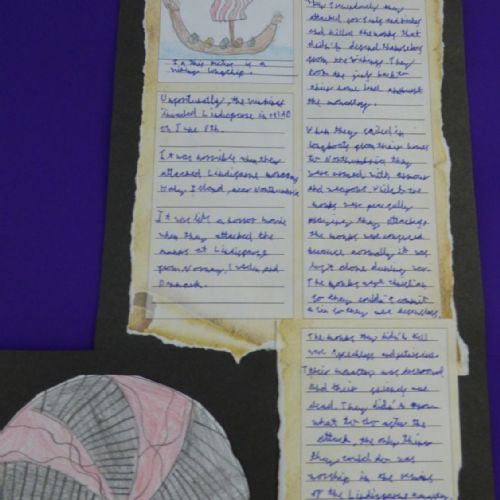 In this picture is a
vikings longship.
Unfortunatly, the vikings
invaded Lindisfarne in
on June 8th.
It was horrible when they
attacked Lindisfarne monastery
Holy Island, near Northumbria
It was like a horror movie
when they attacked the
monks at Lindisfarne
from Norway, Sweden and
Denmark.
They
attacked
and killed the monks that
didn't defend themselves
from the vikings. They
took the back to
their home land and burnt
the monastery.
When they sailed in
longboats from their homes
to Northumbria they
were armed with armour
and weapons. While the
monks were peacefully
praying they attacked
the monks was confused
because normally it was
left alone during war.
The monks were christian
so they couldn't commit
a sin so they were defenseless.
The monks they didn't kill
was speechless and
Their monastery was destroyed
and their friends were
dead. They didn't know
what to do after the
attack, the only thing
they could do was
worship in the remains
of the Lindisfarne